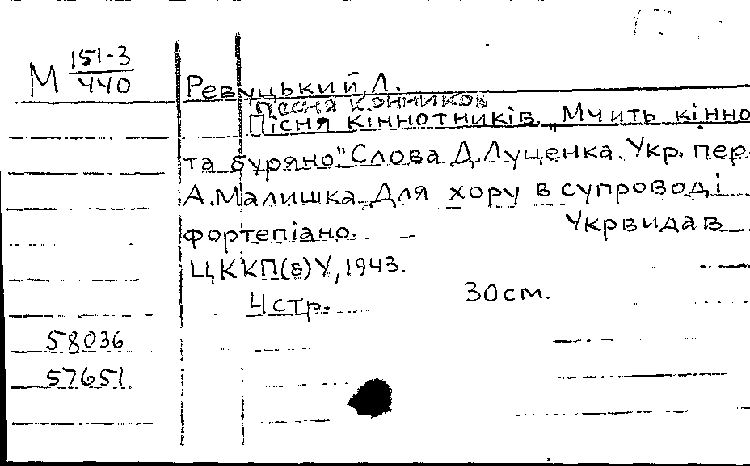 М 151-3
440
Ревуцький Л.
Песня конников
Пісня кіннотників. „Мчить кінно
та буряно" Слова Д. Луценка. Укр. пер.
А. Малишка. Для хору в супроводі
фортепіано. Укрвидав
ЦККП(б)У, 1943.
4 стр. 30 см.
58036
57651.